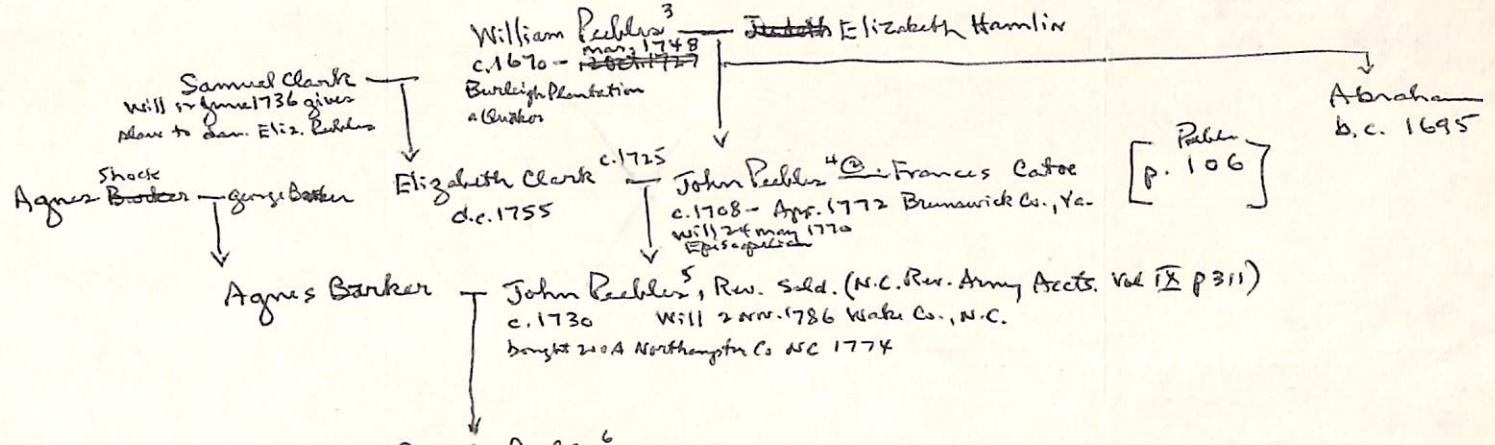 William Peebles³ — Judith Elizabeth Hamlin
Mar. 1748
c.1670 - 12 Oct. 1727
Burleigh Plantation
a Quaker
Samuel Clark
Will 12 June 1736 gives
slave to dau. Eliz. Peebles
Abraham
b.c. 1695
Shock
Agnes Barker — George Barker
Elizabeth Clark c.1725 — John Peebles⁴ ② Frances Catoe
d.c. 1755
c.1708 - Apr. 1772 Brunswick Co., Va.
Will 24 May 1770
Episcopalian
[Peebles
p. 106]
Agnes Barker — John Peebles⁵, Rev. Sold. (N.C. Rev. Army Accts. Vol IX p 311)
c. 1730 Will 2 Nov. 1786 Wake Co., N.C.
bought 200A Northampton Co NC 1774
6